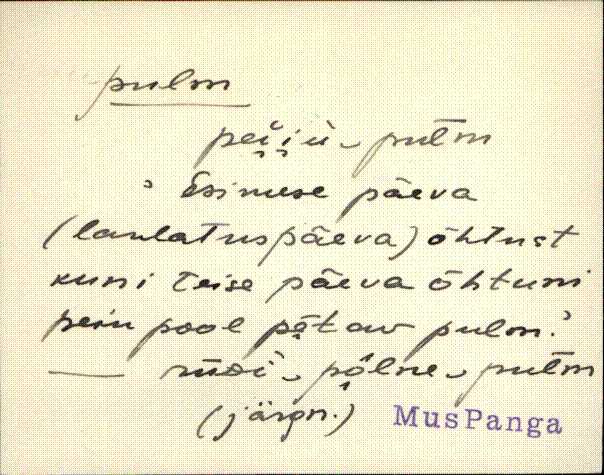 pulm
peìi̯ù‿pul̄m
’Esimese päeva
(laulatuspäeva) õhtust
kuni teise päeva õhtuni
peiu pool pẹtaw pulm.’
—— rüöì‿pǫ́lne‿pul̄m
(järgn.) MusPanga